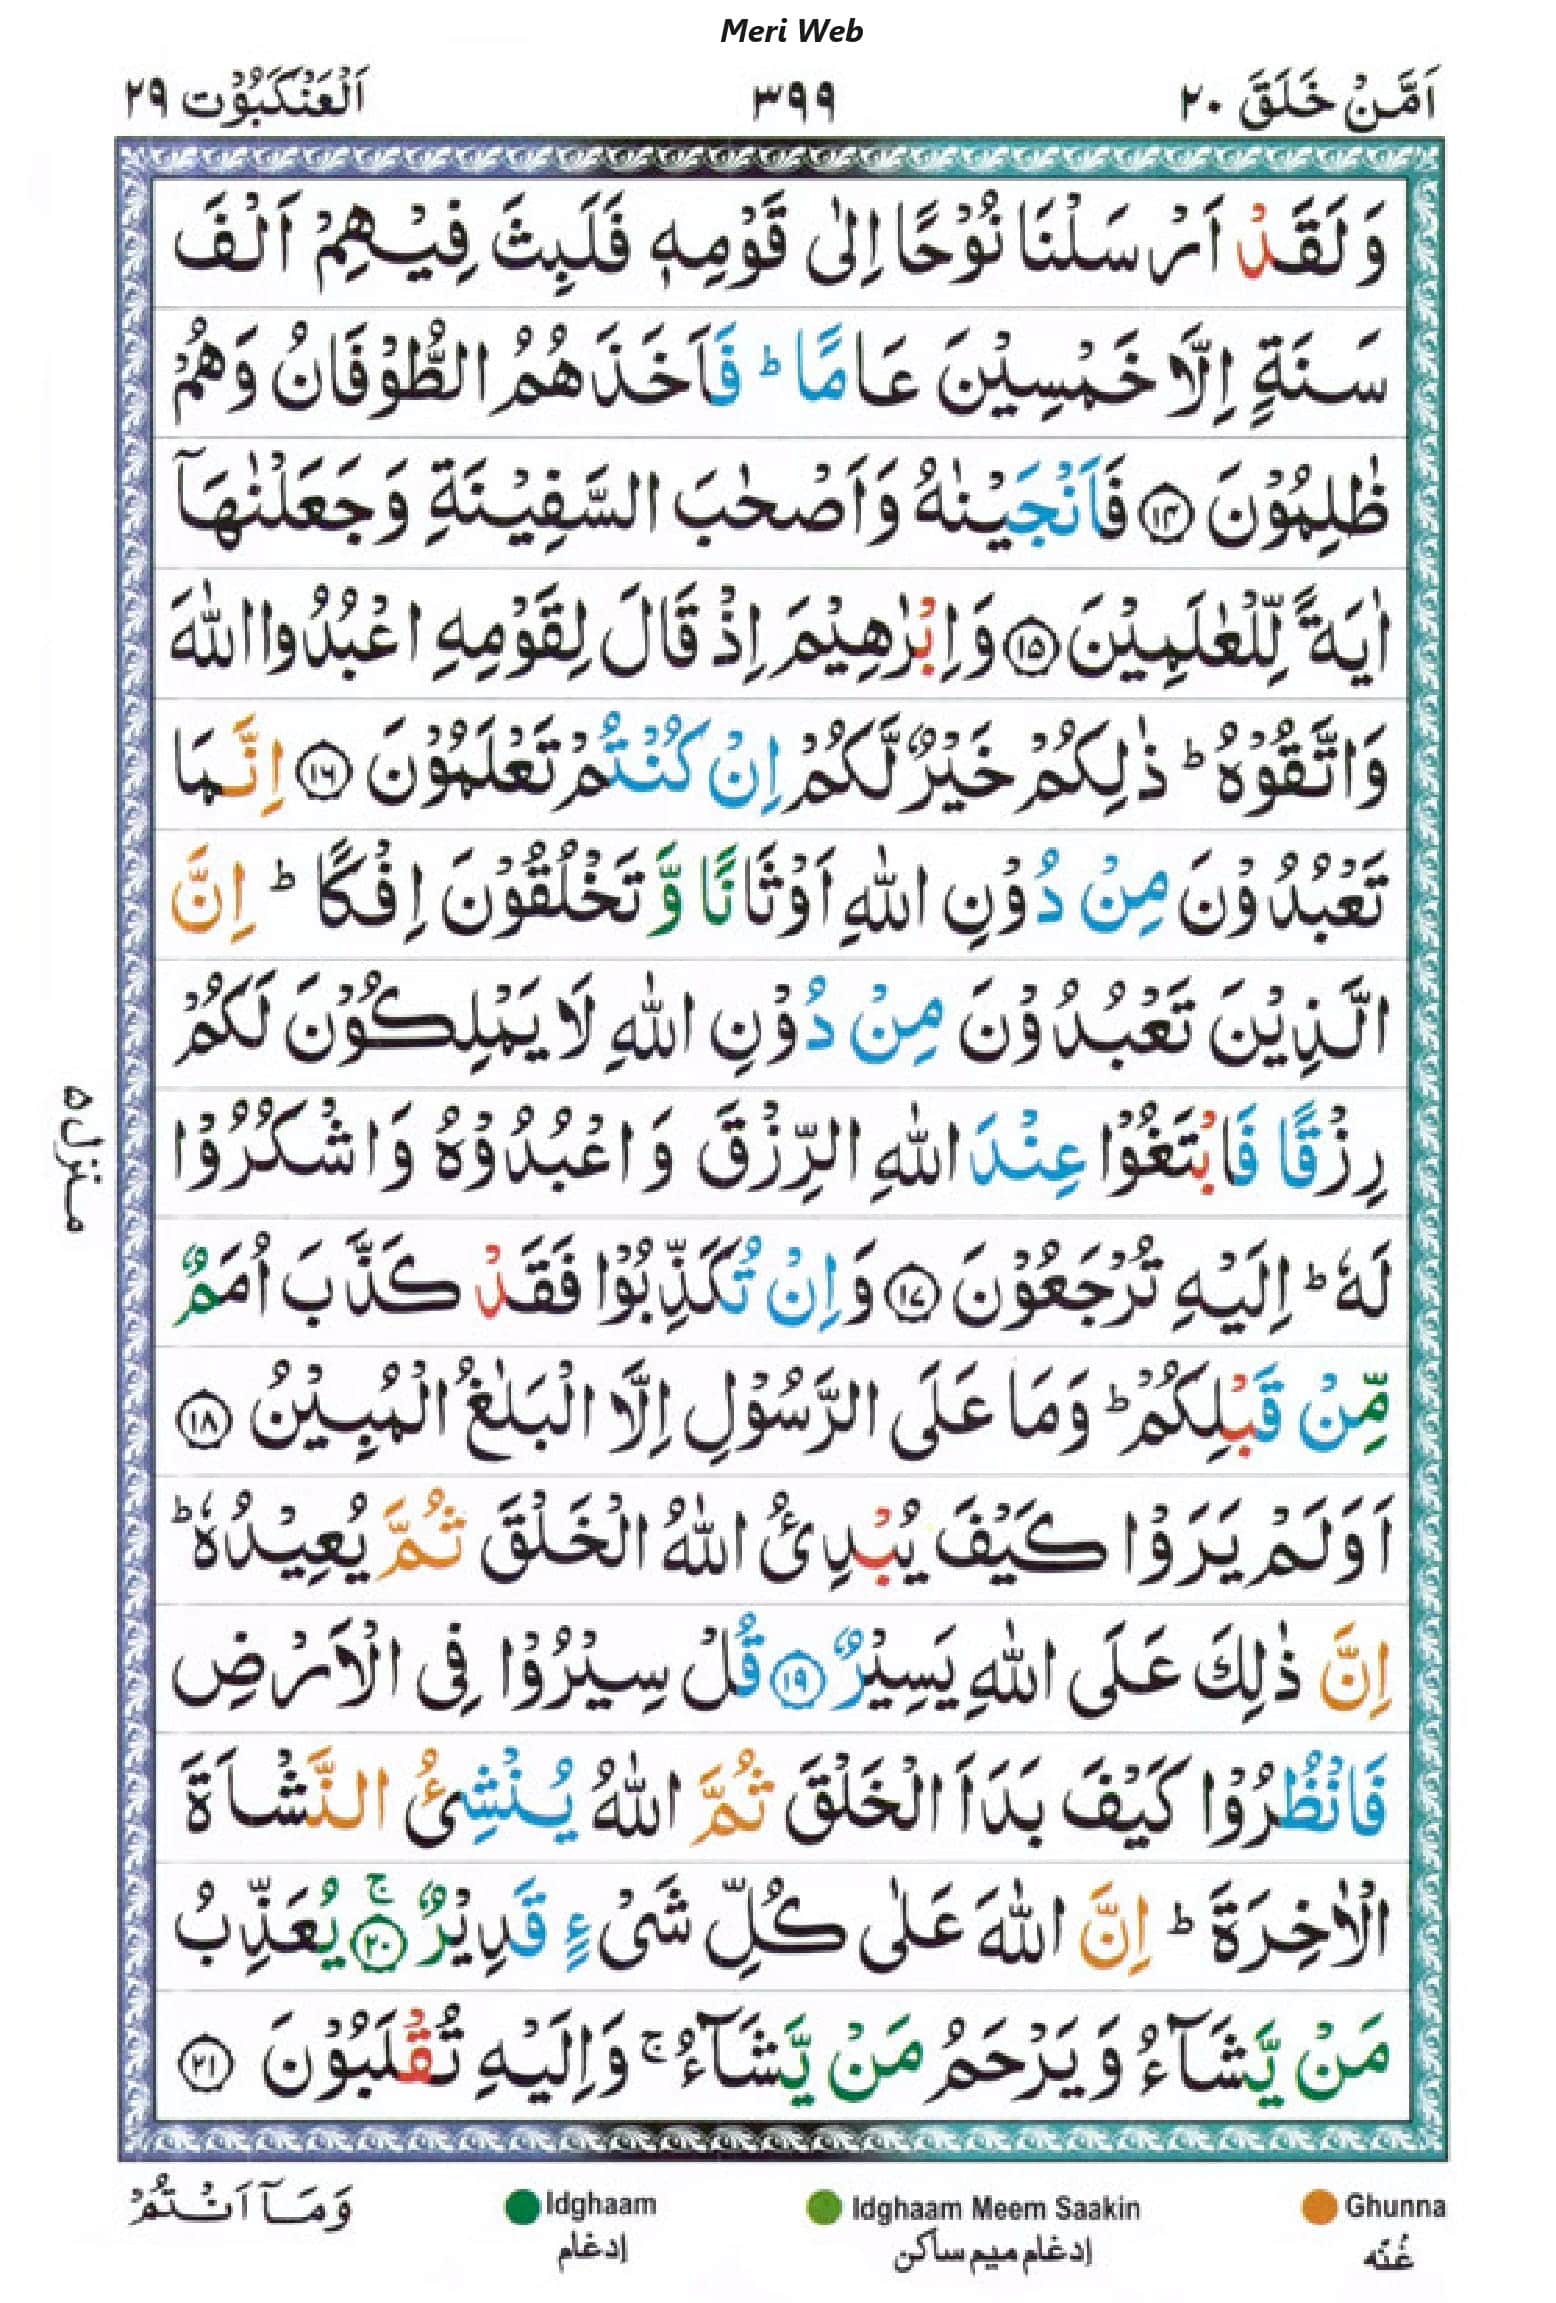 Meri Web
اَمَّنْ خَلَقَ ٢٠
٣٩٩
اَلْعَنْكَبُوْت ٢٩
وَلَقَدْ اَرْسَلْنَا نُوْحًا اِلٰى قَوْمِهٖ فَلَبِثَ فِيْهِمْ اَلْفَ
سَنَةٍ اِلَّا خَمْسِيْنَ عَامًا ؕ فَاَخَذَهُمُ الطُّوْفَانُ وَهُمْ
ظٰلِمُوْنَ ۝۱۴ فَاَنْجَيْنٰهُ وَاَصْحٰبَ السَّفِيْنَةِ وَجَعَلْنٰهَاۤ
اٰيَةً لِّلْعٰلَمِيْنَ ۝۱۵ وَاِبْرٰهِيْمَ اِذْ قَالَ لِقَوْمِهِ اعْبُدُوا اللّٰهَ
وَاتَّقُوْهُ ؕ ذٰلِكُمْ خَيْرٌ لَّكُمْ اِنْ كُنْتُمْ تَعْلَمُوْنَ ۝۱۶ اِنَّمَا
تَعْبُدُوْنَ مِنْ دُوْنِ اللّٰهِ اَوْثَانًا وَّ تَخْلُقُوْنَ اِفْكًا ؕ اِنَّ
الَّذِيْنَ تَعْبُدُوْنَ مِنْ دُوْنِ اللّٰهِ لَا يَمْلِكُوْنَ لَكُمْ
رِزْقًا فَابْتَغُوْا عِنْدَ اللّٰهِ الرِّزْقَ وَاعْبُدُوْهُ وَاشْكُرُوْا
لَهٗ ؕ اِلَيْهِ تُرْجَعُوْنَ ۝۱۷ وَاِنْ تُكَذِّبُوْا فَقَدْ كَذَّبَ اُمَمٌ
مِّنْ قَبْلِكُمْ ؕ وَمَا عَلَى الرَّسُوْلِ اِلَّا الْبَلٰغُ الْمُبِيْنُ ۝۱۸
اَوَلَمْ يَرَوْا كَيْفَ يُبْدِئُ اللّٰهُ الْخَلْقَ ثُمَّ يُعِيْدُهٗ ؕ
اِنَّ ذٰلِكَ عَلَى اللّٰهِ يَسِيْرٌ ۝۱۹ قُلْ سِيْرُوْا فِى الْاَرْضِ
فَانْظُرُوْا كَيْفَ بَدَاَ الْخَلْقَ ثُمَّ اللّٰهُ يُنْشِئُ النَّشْاَةَ
الْاٰخِرَةَ ؕ اِنَّ اللّٰهَ عَلٰى كُلِّ شَىْءٍ قَدِيْرٌ ۚ۝۲۰ يُعَذِّبُ
مَنْ يَّشَآءُ وَيَرْحَمُ مَنْ يَّشَآءُ ۚ وَاِلَيْهِ تُقْلَبُوْنَ ۝۲۱
منزل ۵
Ghunna
غُنّه
Idghaam Meem Saakin
إدغام ميم ساكن
Idghaam
إدغام
وَمَاۤ اَنْتُمْ